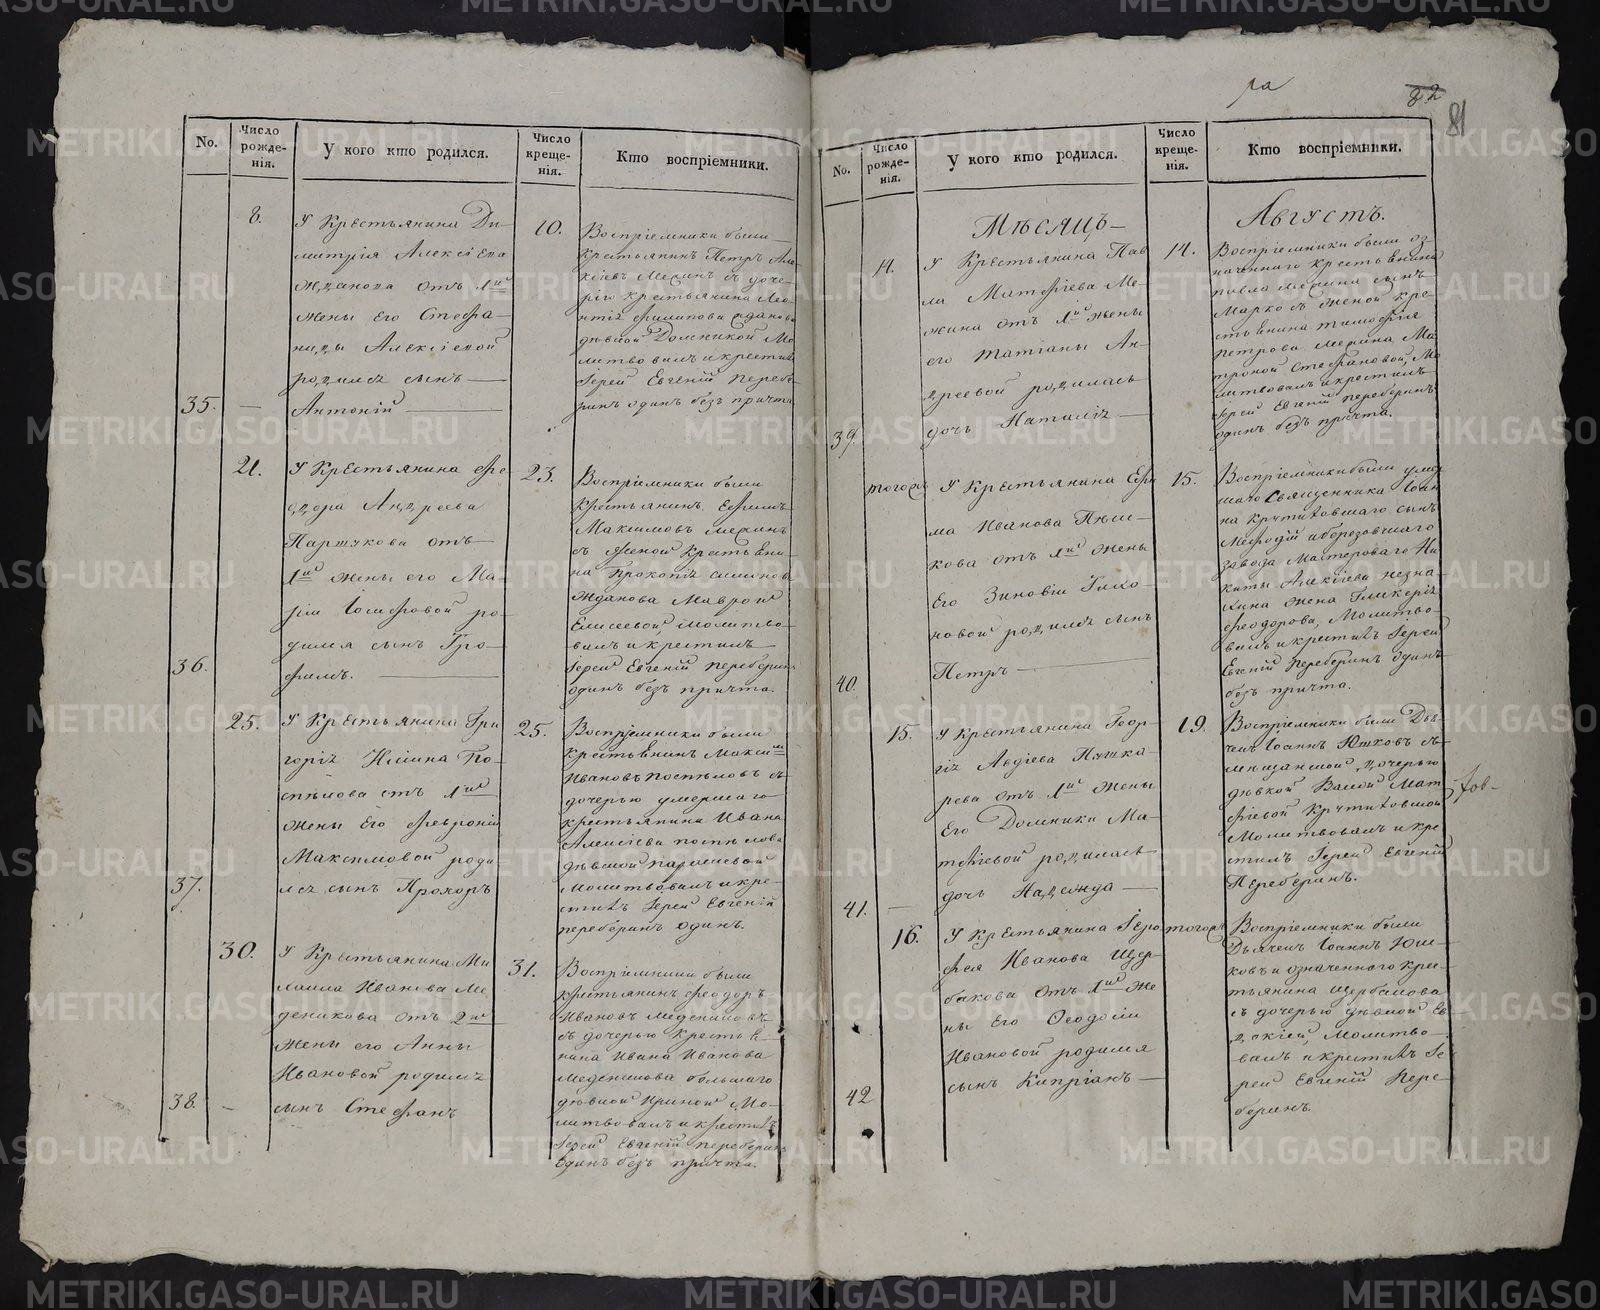 No.
Число рожде-нія.
У кого кто родился.
Число креще-нія.
Кто воспріемники.
35.
8.
У Крестьянина Ди-
митрія Алексіева
Жданова отъ 1й
жены его Стефа-
ниды Алексіевой
родился сынъ
Антоній
10.
Воспріемники были
крестьянинъ Петръ Але-
ксіевъ
съ доче-
рію крестьянина Лео-
нтія Филипова Жданова
дѣвкой Домникой Мо-
литвовалъ и крестилъ
Іерей Евгеній Перебе-
ринъ одинъ безъ причта
36.
21.
У Крестьянина Фе-
одора Андреева
Паршукова отъ
1й жены его Ма-
ріи Іосифовой ро-
дился сынъ Тро-
фимъ.
23.
Воспріемники были
Крестьянинъ Ефимъ
Максимовъ
съ женой Крестьяни-
на Прокопія Симонова
Жданова Маврой
Елисеевой, Молитво-
валъ и крестилъ
Іерей Евгеній Переберинъ
одинъ безъ причта.
37.
25.
У Крестьянина Гри
горія Ильина По-
спѣлова отъ 1й
жены Его Февроніи
Максимовой роди
лся сынъ Прохоръ
25.
Воспріемники были
крестьянинъ Максимъ
Ивановъ Поспѣловъ съ
дочерью умершаго
крестьянина Ивана
Алексіева Поспѣлова
дѣвкой Парасковой
Молитвовалъ и кре-
стилъ Іерей Евгеній
Переберинъ одинъ.
38.
30.
У Крестьянина Ми
хаила Иванова Ме
деникова отъ 2й
жены его Анны
Ивановой родился
сынъ Стефанъ
31.
Воспріемники были
крестьянинъ Феодоръ
Ивановъ Медениковъ
съ дочерью Крестья-
нина Ивана Иванова
Меденикова большаго
дѣвкой Ириной Мо-
литвовалъ и крестилъ
Іерей Евгеній Переберинъ
Единъ безъ причта.
ра
82
81
No.
Число рожде-нія.
У кого кто родился.
Число креще-нія.
Кто воспріемники.
Мѣсяцъ
Августъ.
39.
14.
У Крестьянина Пав
ла Матфіева Ме-
хина отъ 1й жены
его Татіаны Ан-
дреевой родилась
дочь Наталія
14.
Воспріемники были оз-
наченнаго Крестьянина
Павла Мехина сынъ
Марко съ женой Кре-
стьянина Тимофея
Петрова Мехина Ма
троной Стефановой, Мо
литвовалъ и крестилъ
Іерей Евгеній Переберинъ
одинъ безъ причта.
40.
тогожъ
У Крестьянина Ефи
ма Иванова Пѣше-
кова отъ 1й жены
Его Зиновіи Тихо-
новой родился сынъ
Петръ
15.
Воспріемники были умер
шаго Священника Іоан
на Крутиховшаго сынъ
Мефодій и Березовшаго
завода Мастероваго Ни
киты Алексіева
жена Гликерія
Феодорова, Молитво-
валъ и крестилъ Іерей
Евгеній Переберинъ одинъ
безъ причта.
41.
15.
У Крестьянина Геор-
гія Авдіева Пушка
рева отъ 1й жены
Его Домники Ма-
тфіевой родилась
дочь Надежда
19.
Воспріемники были Дья-
чекъ Іоаннъ Юшковъ съ
мещанской дочерью
дѣвкой Вассой Мат
фіевой Крутиховшой
Молитвовалъ и кре
стилъ Іерей Евгеній
Переберинъ.
42
16.
У Крестьянина Іеро
фея Иванова Щер-
бакова отъ 1й же
ны Его Феодосіи
Ивановой родился
сынъ Кипріанъ
тогожъ
Воспріемники были
Дьячекъ Іоаннъ Юш-
ковъ и означеннаго Крес-
тьянина Щербакова
съ дочерью дѣвкой Ев
докіей, Молитво-
валъ и крестилъ Іе-
рей Евгеній Пере-
беринъ.
METRIKI.GASO-URAL.RU